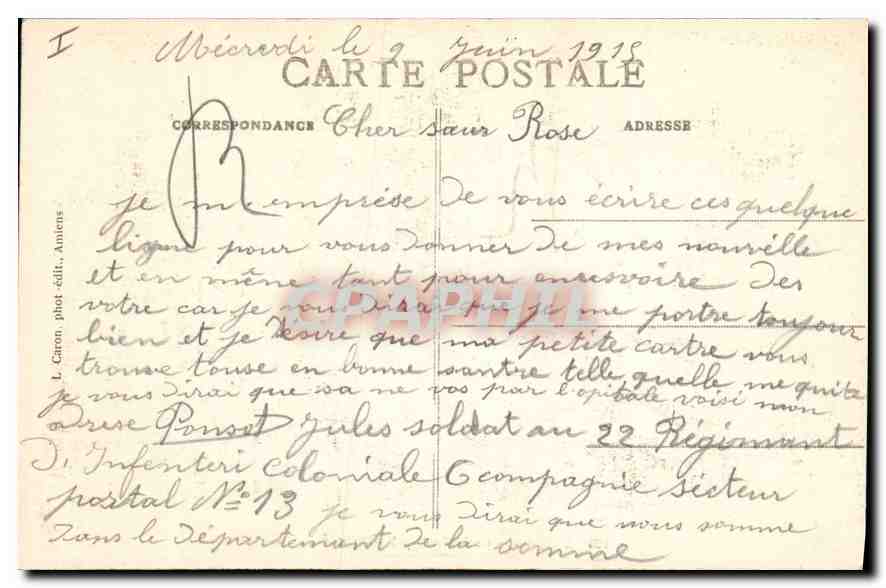 I
Mécredi le 9 Juïn 1915
CARTE POSTALE
CORRESPONDANCE Cher sœur Rose ADRESSE
je m emprése de vous écrire ces quelque
ligne pour vous donner de mes nouvélle
et en même tant pour encesvoire des
votre car je vous dirai que je me portre toujour
bien et je désire que ma petite cartre vous
trouve touse en bonne santre telle quelle me quite
je vous dirai que sa ne vos par l'opitale voisi mon
adrese Ponsot Jules soldat au 22 Régimant
D'Infenteri coloniale 6 compagnie sécteur
postal No 13 je vous dirai que nous somme
dans le département de la somme
L. Caron, phot-édit., Amiens
CPAPHIL